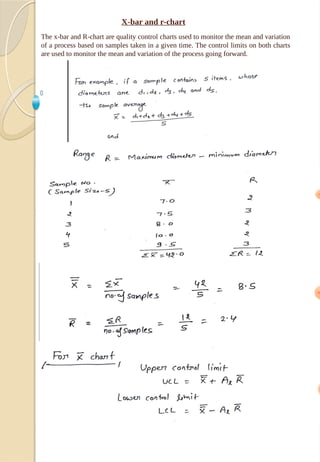 X-bar and r-chart
The x-bar and R-chart are quality control charts used to monitor the mean and variation
of a process based on samples taken in a given time. The control limits on both charts
are used to monitor the mean and variation of the process going forward.
For example, if a sample contains 5 items, whose
diameters are d₁, d₂, d₃, d₄ and d₅.
-the sample average
X̄ = d₁+d₂+d₃+d₄+d₅
5
and
Range R = Maximum diameter - minimum diameter
Sample No. X̄ R
(Sample Size-5)
1 7.0 2
2 7.5 3
3 8.0 2
4 10.0 2
5 9.5 3
ΣX̄ = 42.0 ΣR = 12
X̿ = ΣX̄ / no. of samples = 42 / 5 = 8.5
R̄ = ΣR / no. of samples = 12 / 5 = 2.4
For X̄ chart
Upper control limit
UCL = X̿ + A₂ R̄
Lower control limit
LCL = X̿ - A₂ R̄